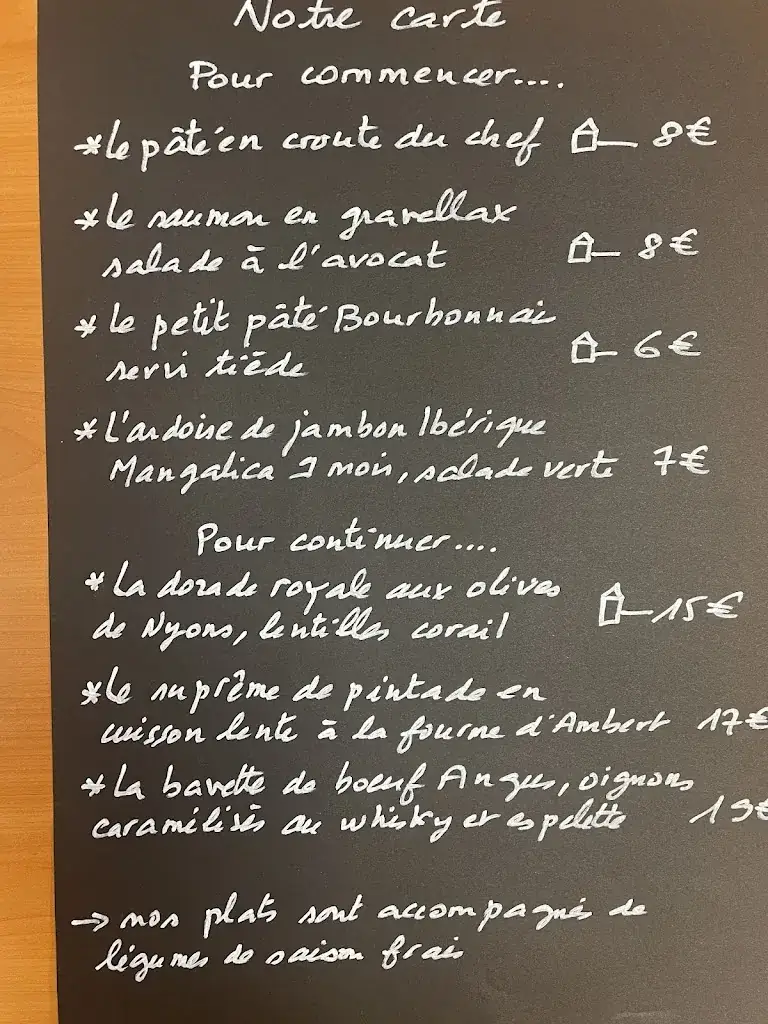 Notre carte
Pour commencer....
*Le pâté en croute du chef 8€
*Le saumon en gravellax
salade à l'avocat 8€
*Le petit pâté Bourbonnais
servi tiède 6€
*L'ardoise de jambon Ibérique
Mangalica 9 mois, salade verte 7€
Pour continuer....
*La dorade royale aux olives
de Nyons, lentilles corail 15€
*Le suprême de pintade en
cuisson lente à la fourme d'Ambert 17€
*La bavette de boeuf Angus, oignons
caramélisés au whisky et espelette 19€
→ nos plats sont accompagnés de
légumes de saison frais